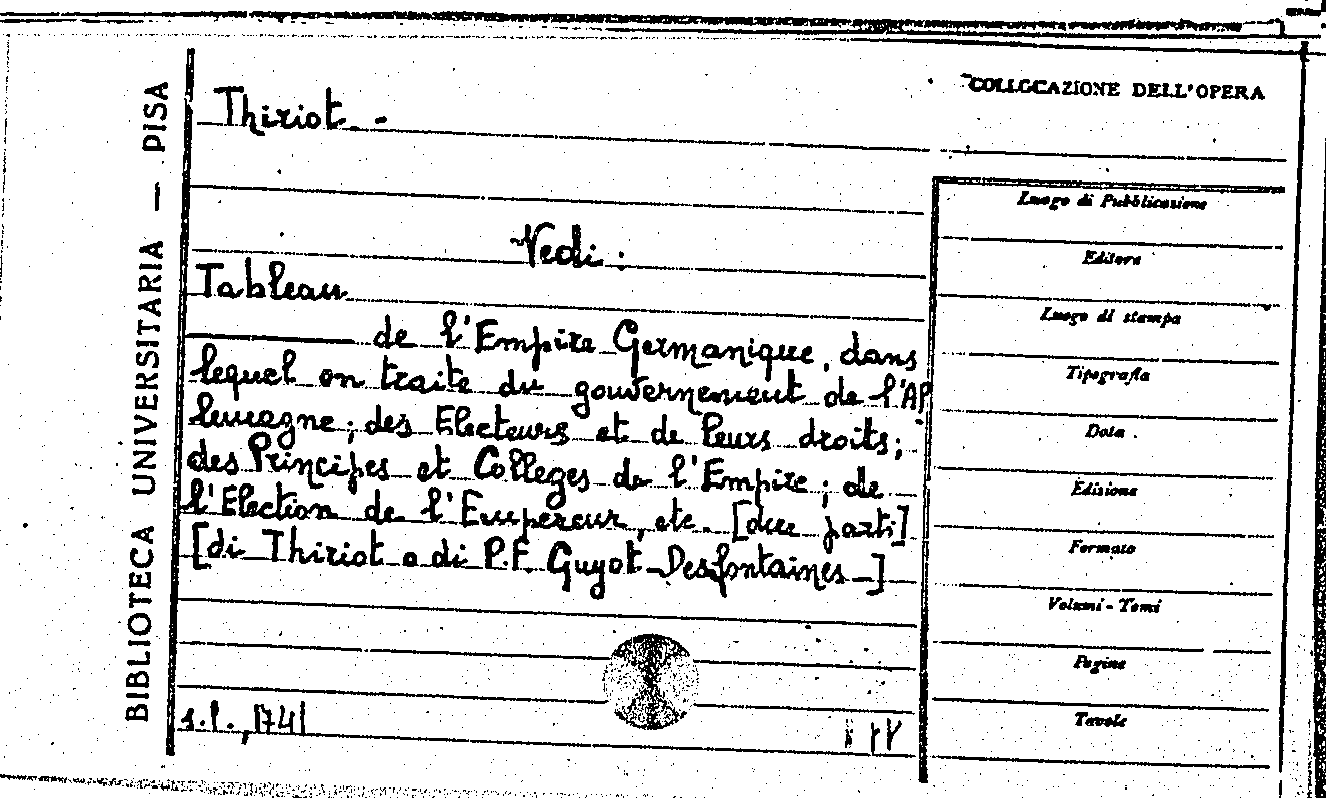 BIBLIOTECA UNIVERSITARIA — PISA
COLLOCAZIONE DELL'OPERA
Thiriot -
Vedi :
Tableau
——— de l'Empire Germanique, dans
lequel on traite du gouvernement de l'Al
lemagne; des Electeurs et de leurs droits;
des Principes et Colleges de l'Empire; de
l'Election de l'Empereur, etc. [due parti]
[di Thiriot o di P.F. Guyot-Desfontaines -]
s.l., 1741
Luogo di Pubblicazione
Editore
Luogo di stampa
Tipografia
Data
Edizione
Formato
Volumi - Tomi
Pagine
Tavole